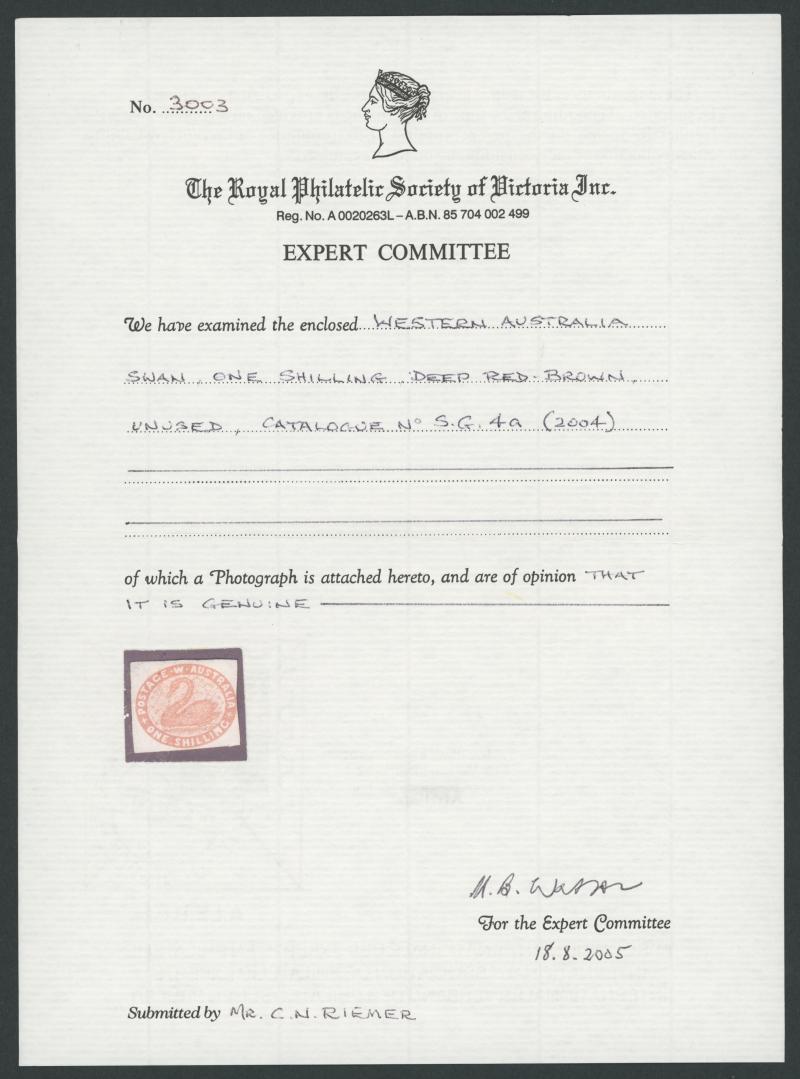 No. 3003
The Royal Philatelic Society of Victoria Inc.
Reg. No. A 0020263L – A.B.N. 85 704 002 499
EXPERT COMMITTEE
We have examined the enclosed WESTERN AUSTRALIA
SWAN, ONE SHILLING, DEEP RED-BROWN,
UNUSED, CATALOGUE Nº S.G. 4a (2004)
of which a Photograph is attached hereto, and are of opinion THAT
IT IS GENUINE
POSTAGE · W · AUSTRALIA
ONE SHILLING
M. B. Watson
For the Expert Committee
18.8.2005
Submitted by MR. C.N. RIEMER